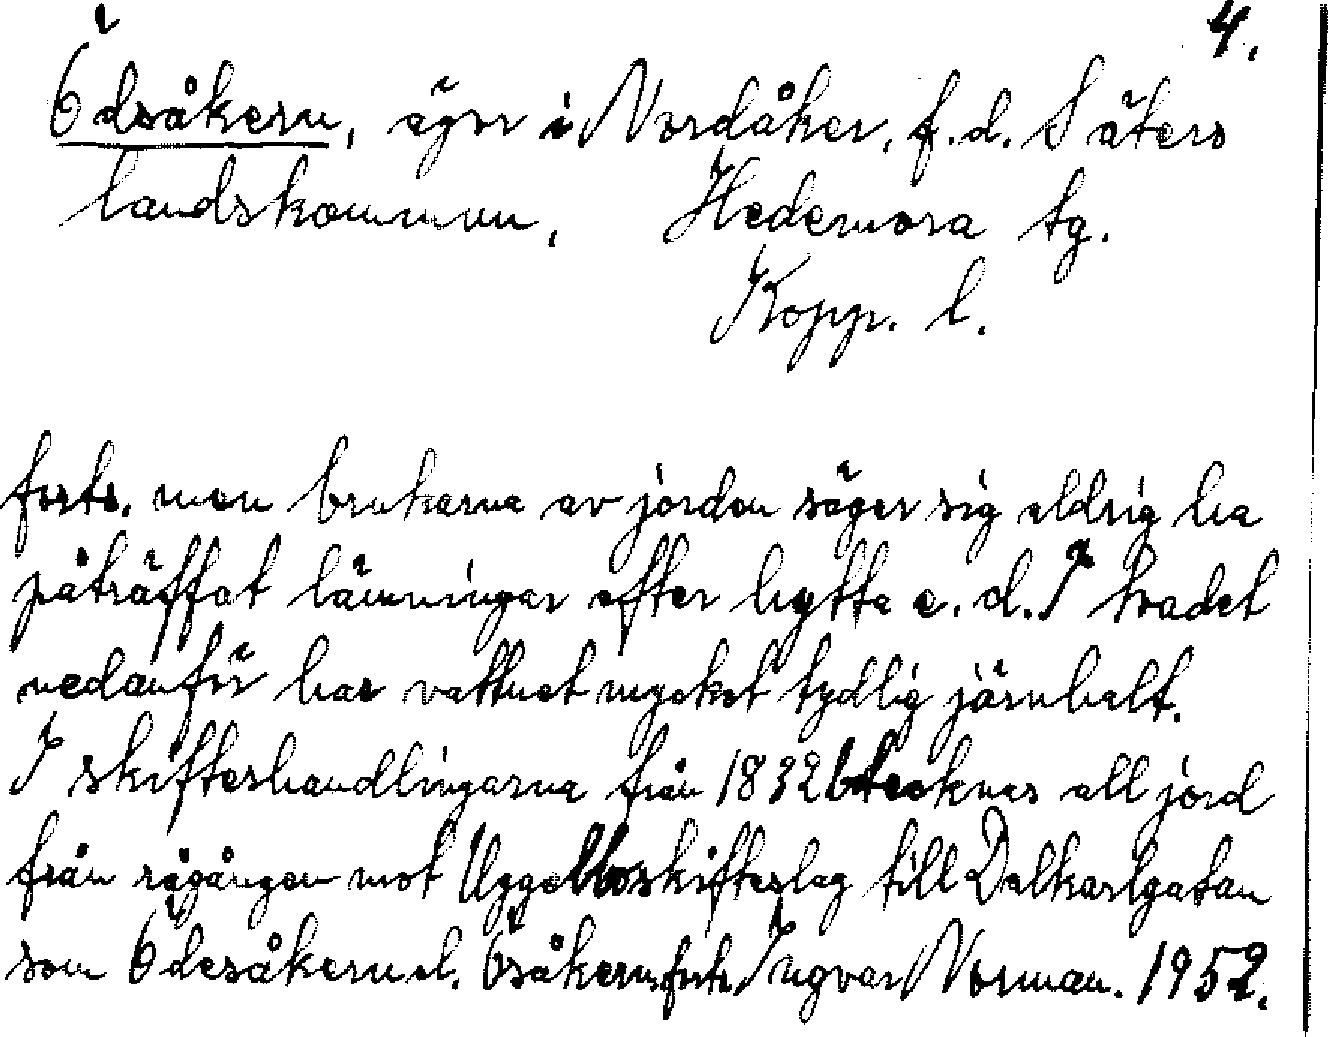 4.
Ödsåkern, ägor i Nordåker, f.d. Säters
landskommun, Hedemora tg.
Kopp. l.
forts. men brukarna av jorden säger sig aldrig ha
påträffat lämningar efter hytta e. d. I kradet
nedanför har vattnet mycket tydlig järnhalt.
I skifteshandlingarna från 1832 betecknas all jord
från rågången mot Uggelbo skifteslag till Dalkarlgatan
som Ödesåkern el. Ösåkern. forts. Ingvar Norman. 1952.